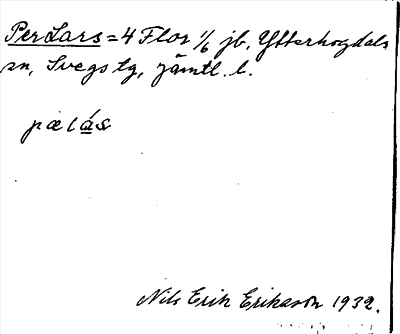 Per Lars = 4 Flor 1/6 jb, Ytterhogdals
sn, Svegs tg, Jämtl. l.
pælás
Nils Erik Eriksson 1932.